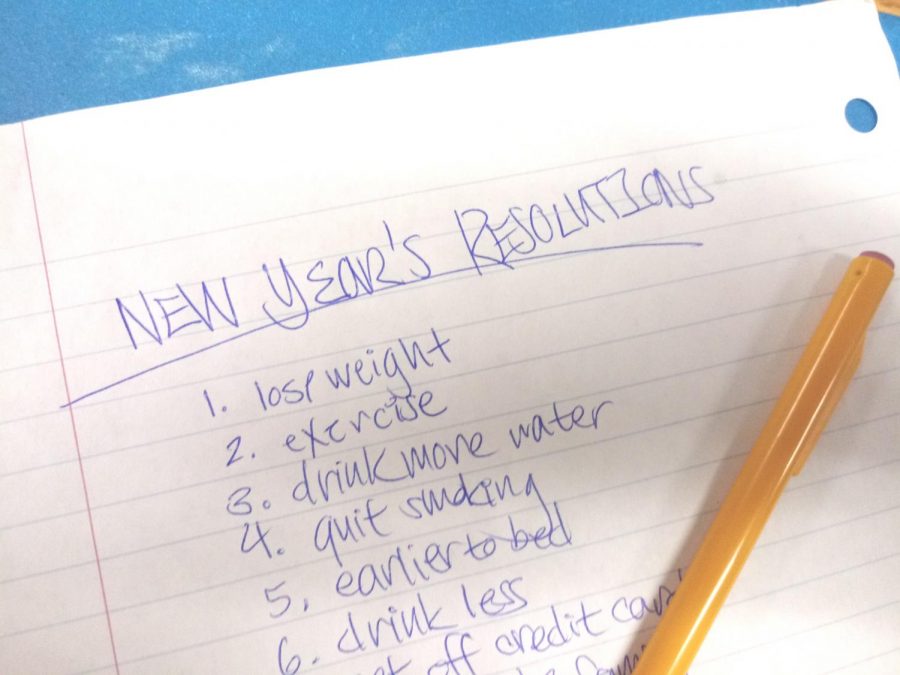 NEW YEAR'S RESOLUTIONS
1. lose weight
2. exercise
3. drink more water
4. quit smoking
5. earlier to bed
6. drink less
off credit